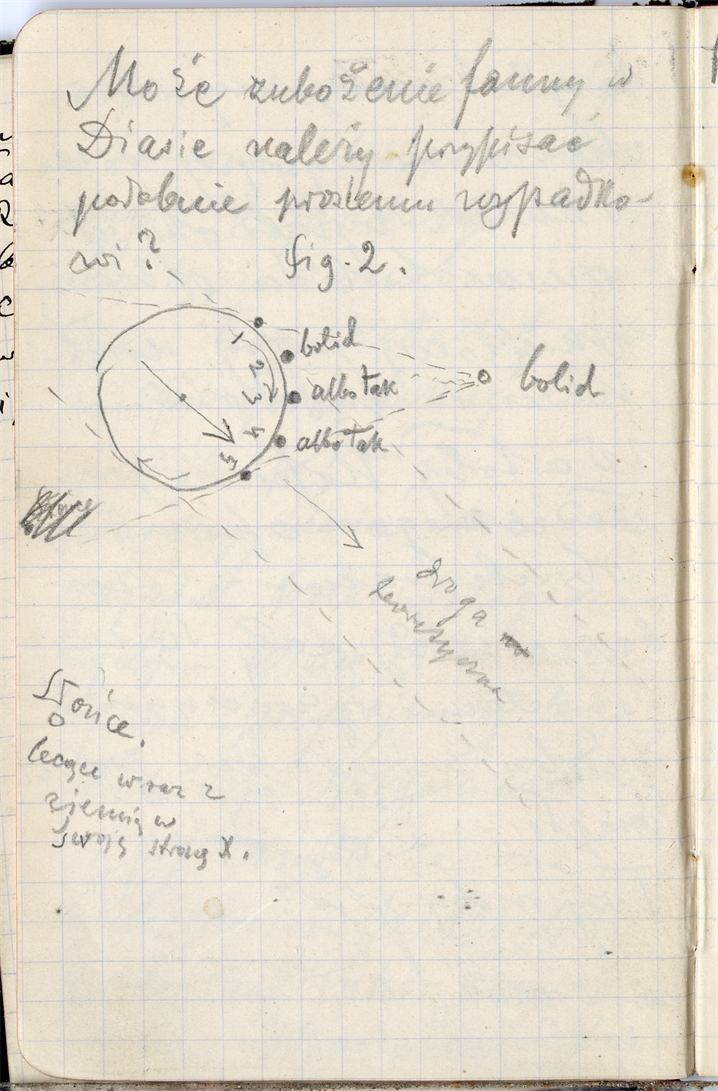 Może zubożenie fauny w
Diasie należy przypisać
podobnie prostemu wypadko-
wi? fig. 2.
1
2
3
4
5
bolid
albo tak
albo tak
bolid
droga
teoretyczna
Słońce.
lecące wraz z
ziemią w
swoją stronę X.